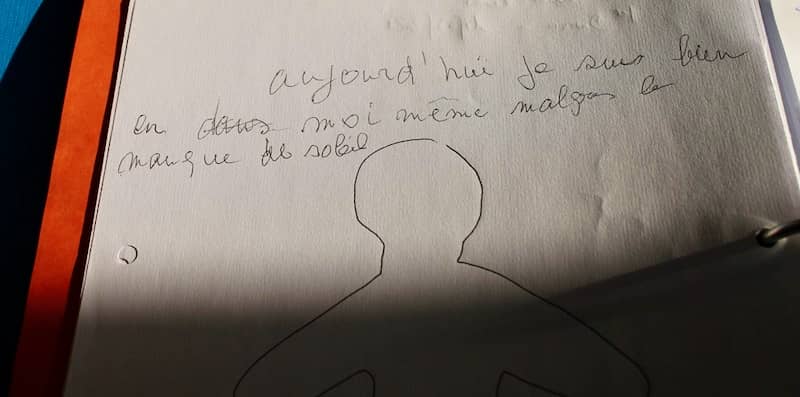 aujourd'hui je suis bien
en dans moi même malgré le
manque de soleil